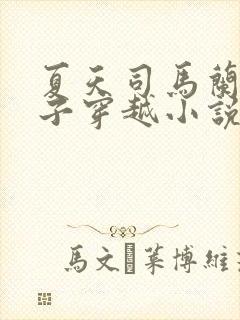 夏天司馬蘭
子穿越小說
馬文 萊博維